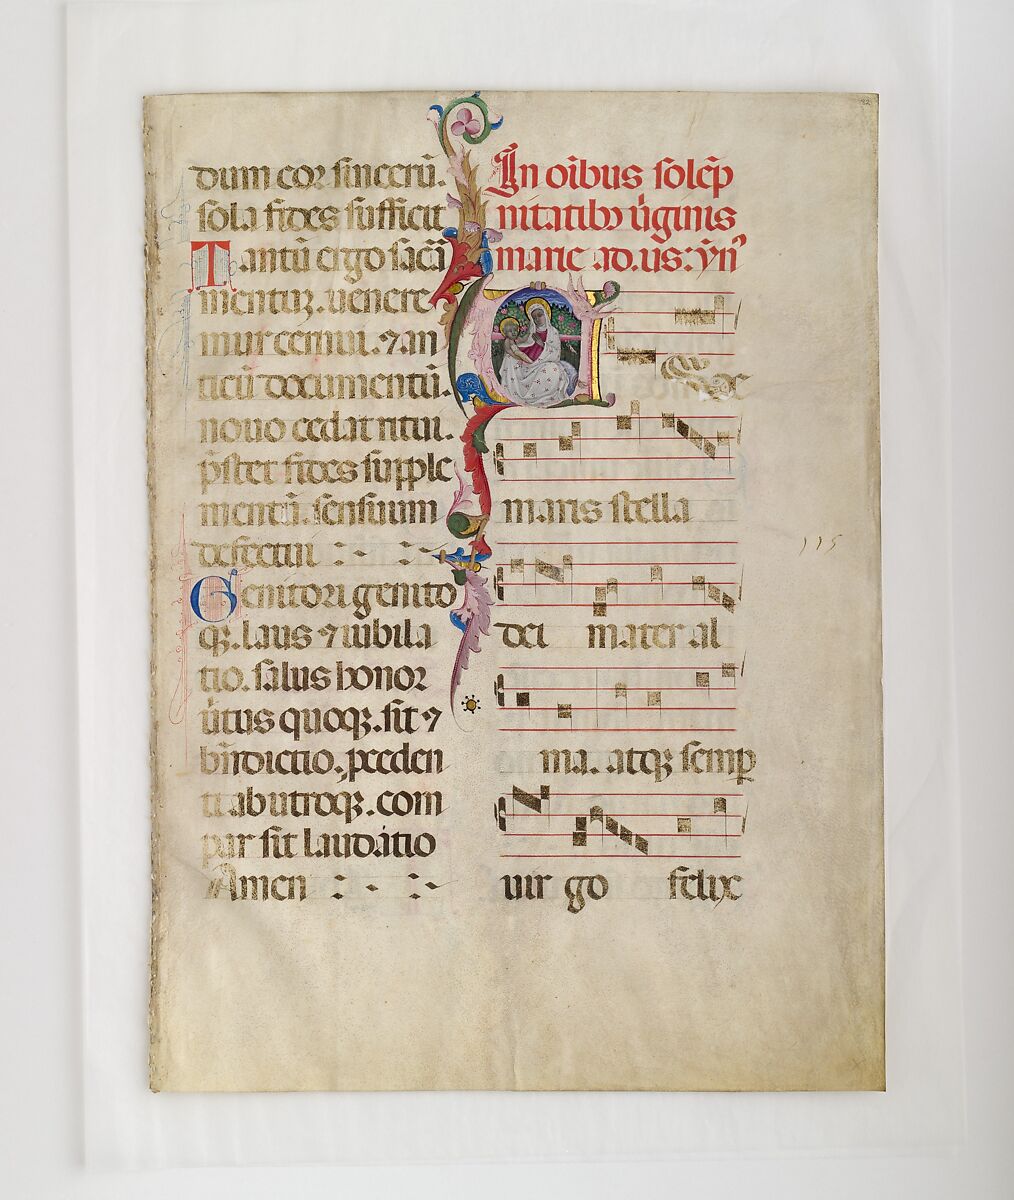 dum cor sincerū.
sola fides sufficit
Tantū ergo sacā
mentuꝫ. uenere
mur cernui. ⁊ an
ticū documentū.
nouo cedat ritui.
p̄stet fides supple
mentū. sensuum
defectui : · :~
Genitori genito
qꝫ. laus ⁊ iubila
tio. salus honor
ūtus quoqꝫ. sit ⁊
bn̄dictio. pceden
ti ab utroqꝫ. com
par sit laudatio
Amen : · :~
In oībus solēp
nitatibꝫ ūginis
marie ad. us: yn̄
maris stella
dei mater al
ma. atqꝫ semꝑ
uir go felix
115